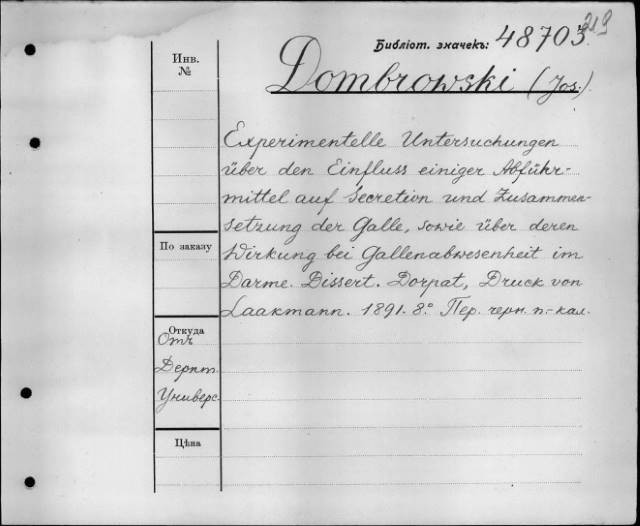 219
Библіот. значекъ: 48703.
Инв.
№
Dombrowski (Jos.)
Experimentelle Untersuchungen
über den Einfluss einiger Abführ-
mittel auf Secretion und Zusammen-
setzung der Galle, sowie über deren
Wirkung bei Gallenabwesenheit im
Darme. Dissert. Dorpat, Druck von
Laakmann. 1891. 8.° Пер. черн. п.-кал.
По заказу
Откуда
Отъ
Дерпт.
Универс.
Цѣна